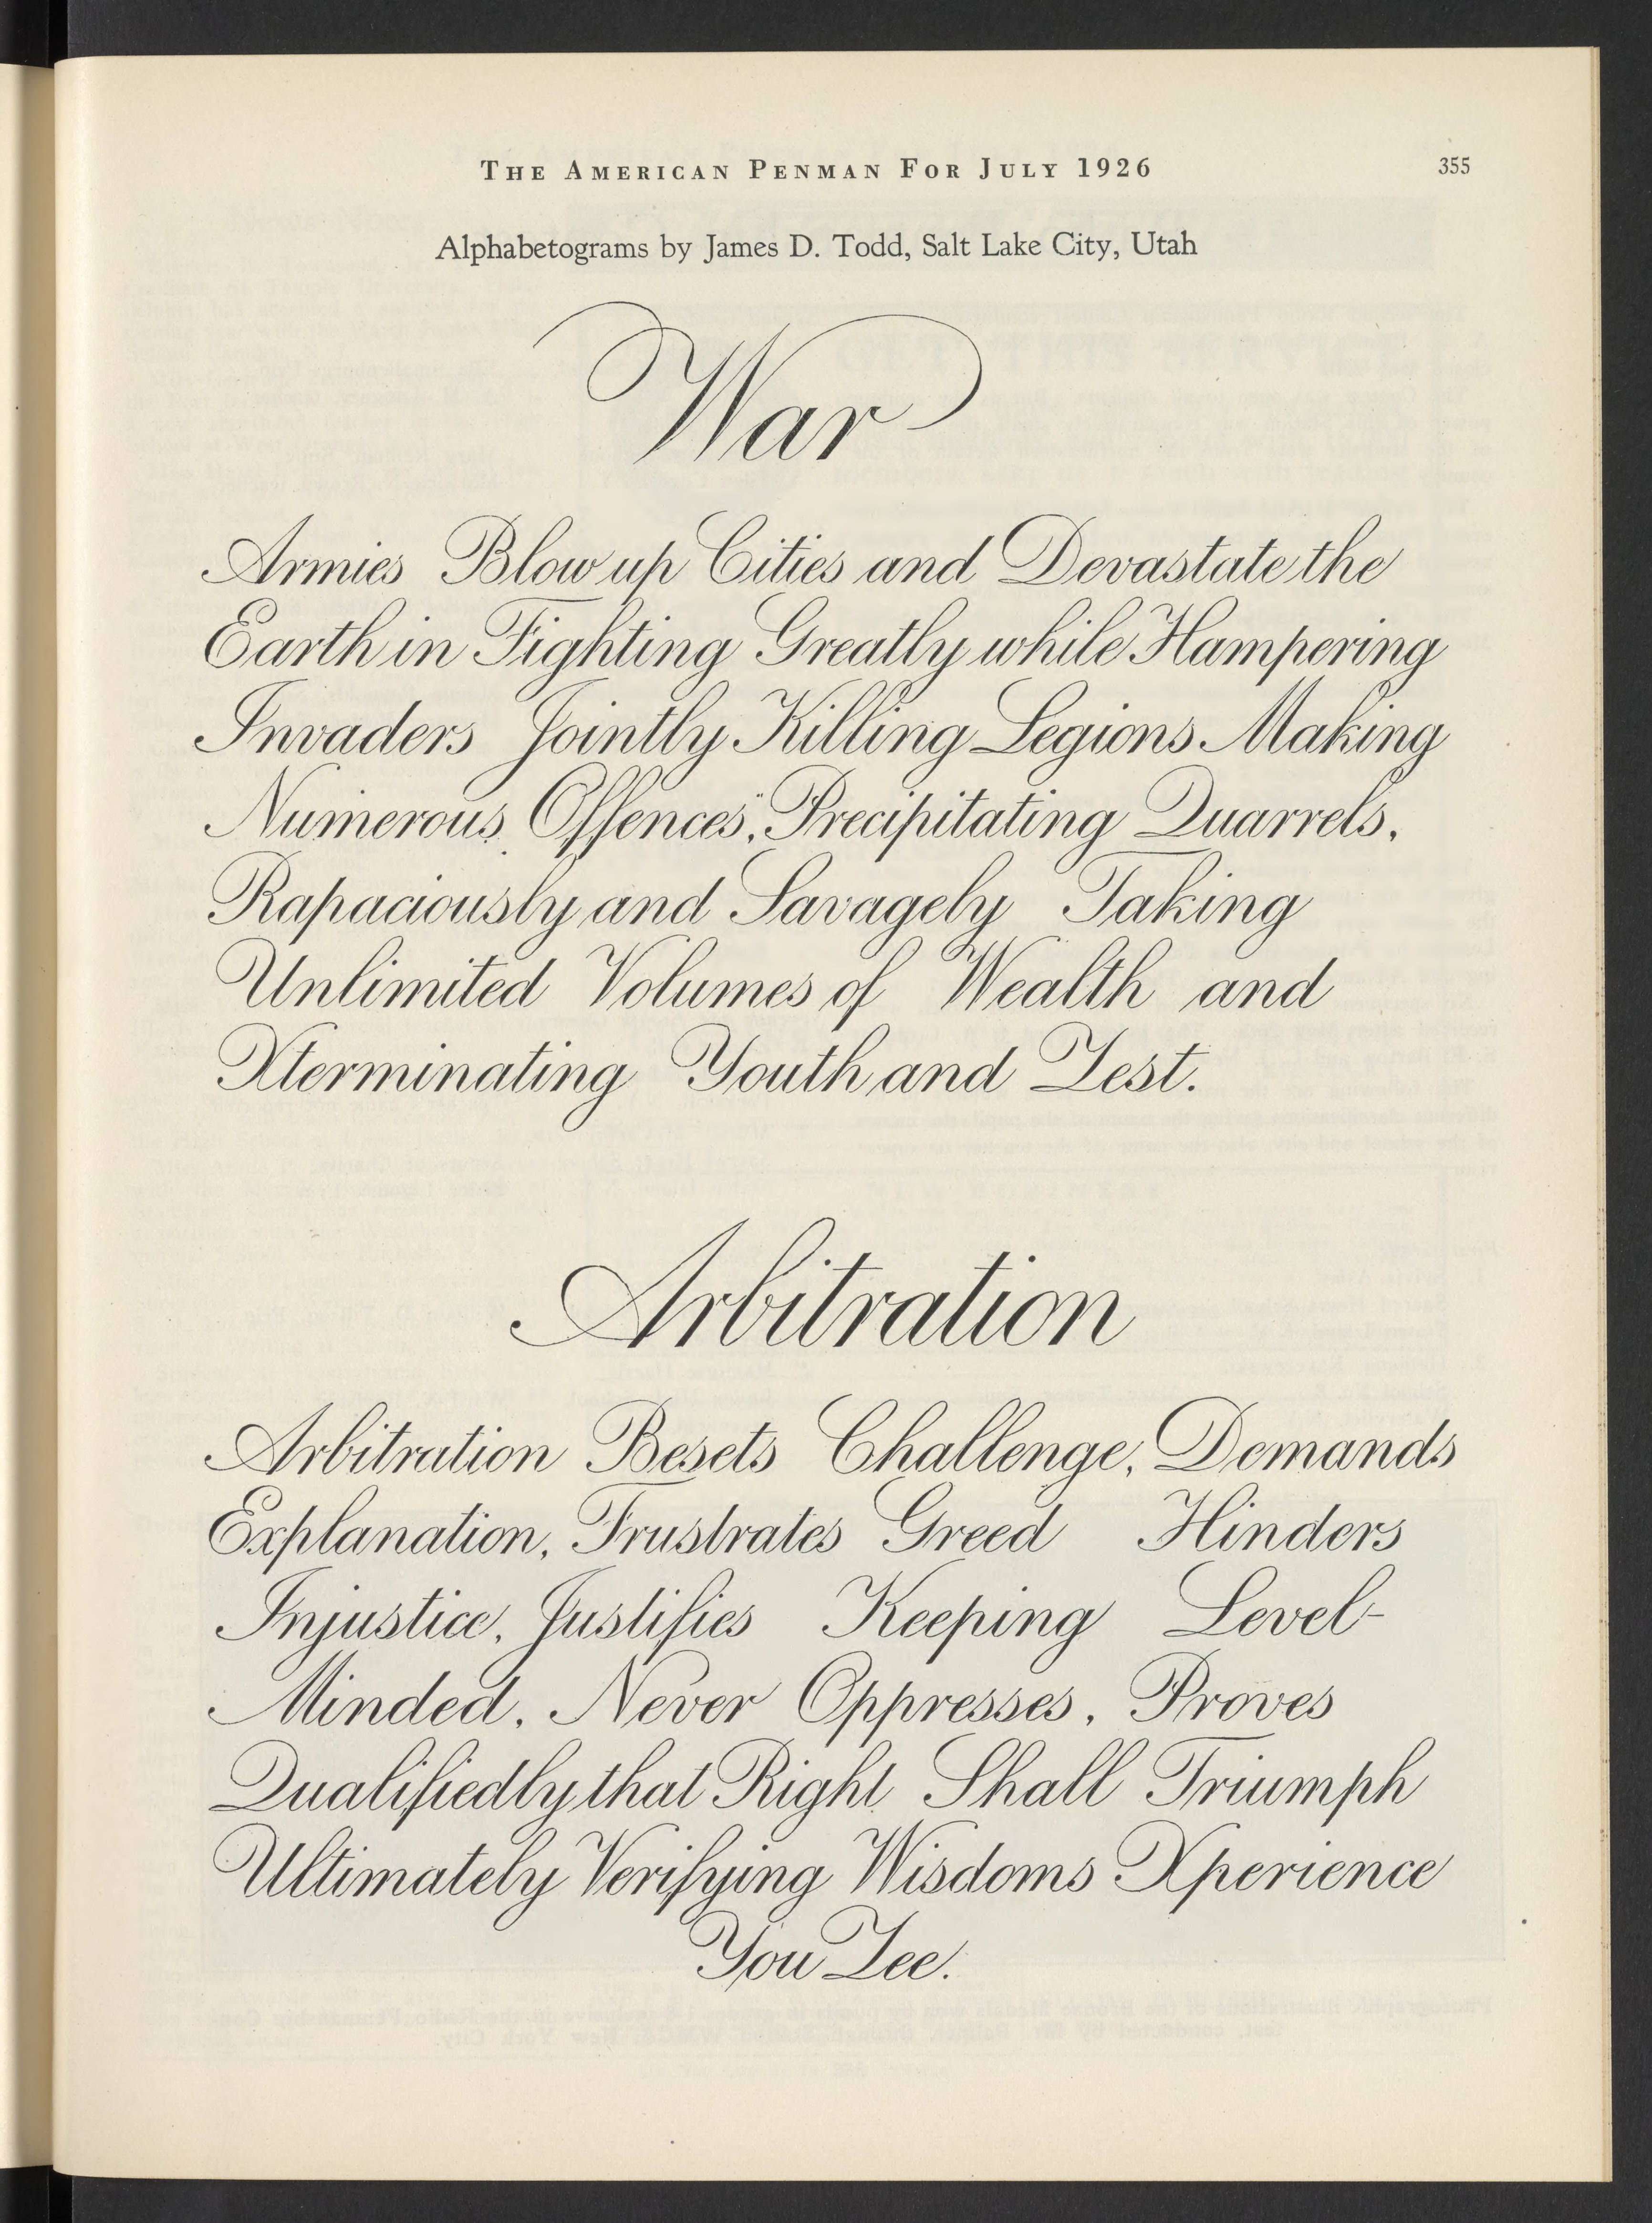 THE AMERICAN PENMAN FOR JULY 1926 355
Alphabetograms by James D. Todd, Salt Lake City, Utah
War
Armies Blow up Cities and Devastate the
Earth in Fighting Greatly while Hampering
Invaders Jointly Killing Legions Making
Numerous Offences, Precipitating Quarrels,
Rapaciously and Savagely Taking
Unlimited Volumes of Wealth and
Xterminating Youth and Zest.
Arbitration
Arbitration Besets Challenge, Demands
Explanation, Frustrates Greed Hinders
Injustice, Justifies Keeping Level-
Minded, Never Oppresses, Proves
Qualifiedly that Right Shall Triumph
Ultimately Verifying Wisdoms Xperience
You Zee.